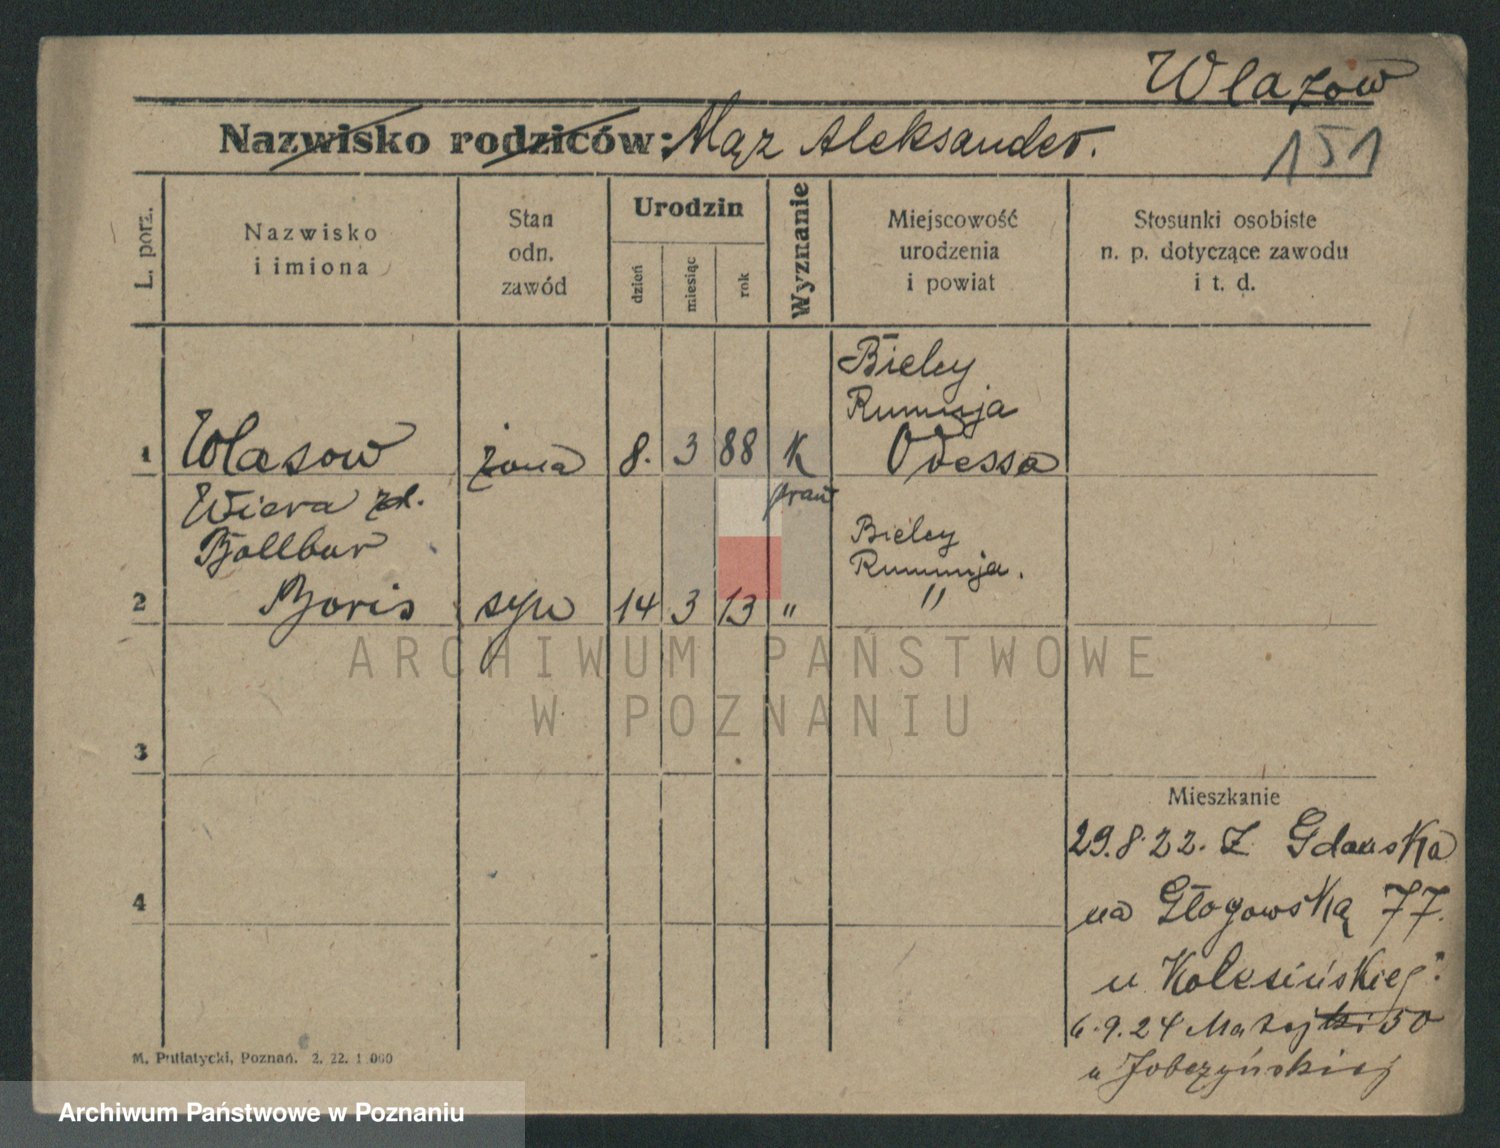 Wlazów
Nazwisko rodziców: Mąż Aleksander.
151
L. porz.
Nazwisko
i imiona
Stan
odn.
zawód
Urodzin
dzień
miesiąc
rok
Wyznanie
Miejscowość
urodzenia
i powiat
Stosunki osobiste
n. p. dotyczące zawodu
i t. d.
Bieley
Rumunja
1 Wlasow żona 8. 3 88 K Odessa
Wiera
praw
Bollbur
Bieley
Rumunja.
2 Boris syn 14 3 13 " "
ARCHIWUM PAŃSTWOWE
W POZNANIU
3
Mieszkanie
29.8.22. Z Gdańska
4
na Głogowską 77.
u Kolesińskieg:
6.9.24 Matejki 50
u Jobczyńskiej
M. Putiatycki, Poznań. 2. 22. 1 000
Archiwum Państwowe w Poznaniu